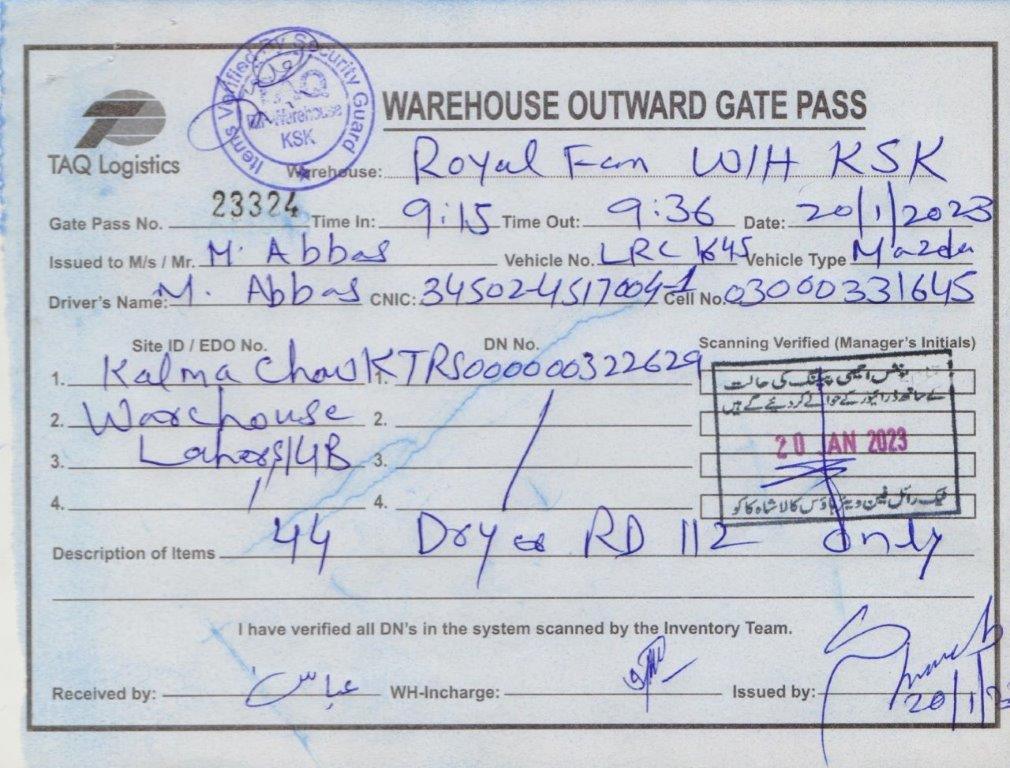 TAQ Logistics
Items Verified by Security Guard
TAQ
Warehouse
KSK
WAREHOUSE OUTWARD GATE PASS
Warehouse: Royal Fan W/H KSK
Gate Pass No. 23324 Time In: 9:15 Time Out: 9:36 Date: 20/1/2023
Issued to M/s / Mr. M. Abbas Vehicle No. LRC 1645 Vehicle Type Mazda
Driver's Name: M. Abbas CNIC: 34502-4517004-1 Cell No. 03000331645
Site ID / EDO No. DN No. Scanning Verified (Manager's Initials)
1. Kalma Chowk 1. TRS000000322629
2. Warehouse 2.
3. Lahore 3.
4. 4.
کے ساتھ ڈرائیور کے حوالے کر دیئے گئے ہیں
20 JAN 2023
Description of Items 44 Dryer RD 112 only
I have verified all DN's in the system scanned by the Inventory Team.
Received by: عباس WH-Incharge: Issued by:
20/1/23